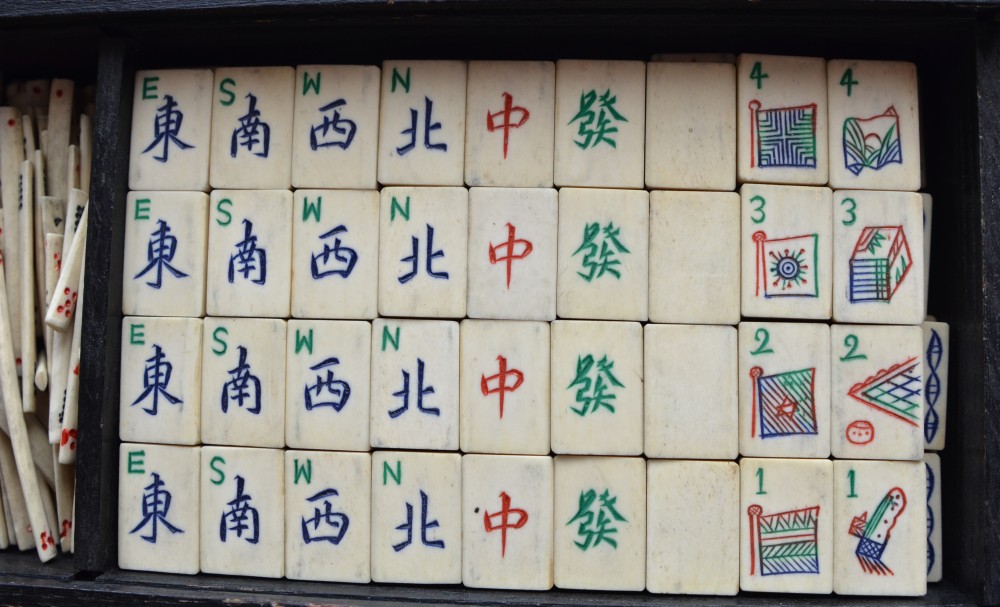 E 東 S 南 W 西 N 北 中 發 4 4
E 東 S 南 W 西 N 北 中 發 3 3
E 東 S 南 W 西 N 北 中 發 2 2
E 東 S 南 W 西 N 北 中 發 1 1